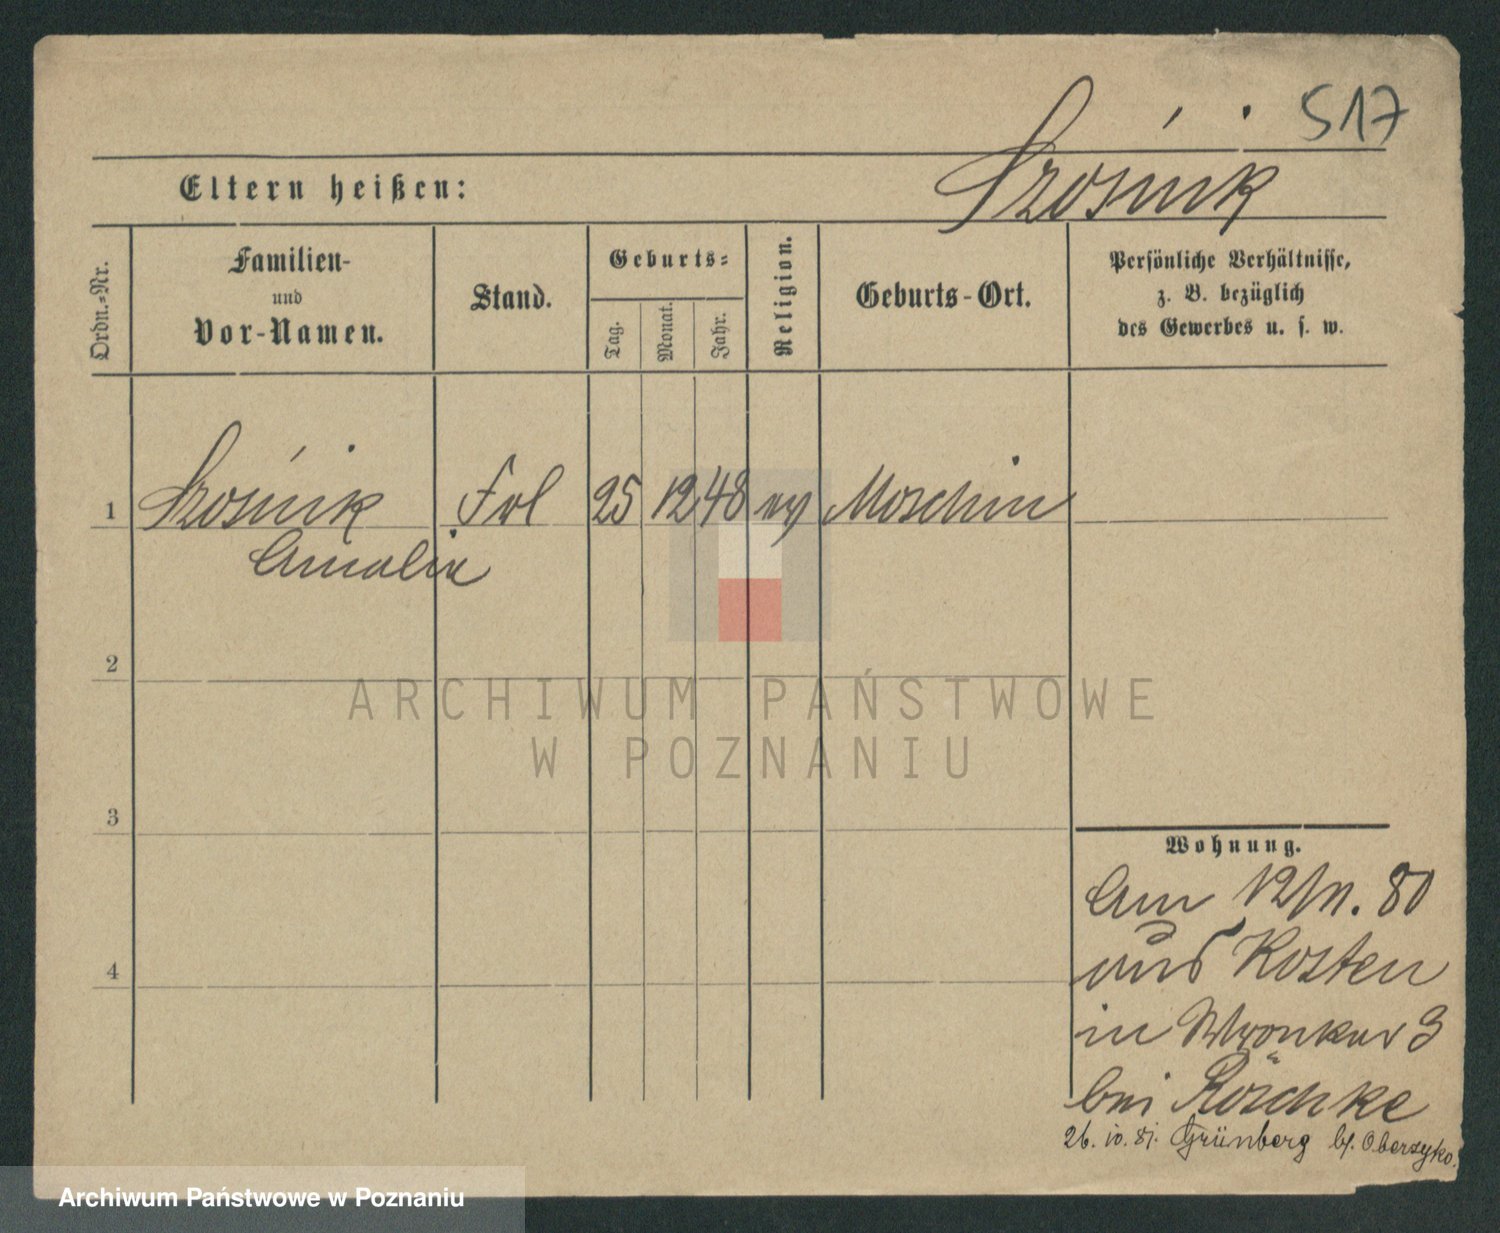 517
Szośnik
Eltern heißen:
Ordn.-Nr.
Familien-
und
Vor-Namen.
Stand.
Geburts-
Tag.
Monat.
Jahr.
Religion.
Geburts-Ort.
Persönliche Verhältnisse,
z. B. bezüglich
des Gewerbes u. s. w.
1 Szośnik Frl 25 12 48 Moschin
Amalie
2
ARCHIWUM PAŃSTWOWE
W POZNANIU
3
Wohnung.
Am 12/11. 80
aus Kosten
in Wronker 3
4
bei Röschke
26. 10. 81. Grünberg b/. Obersyko.
Archiwum Państwowe w Poznaniu